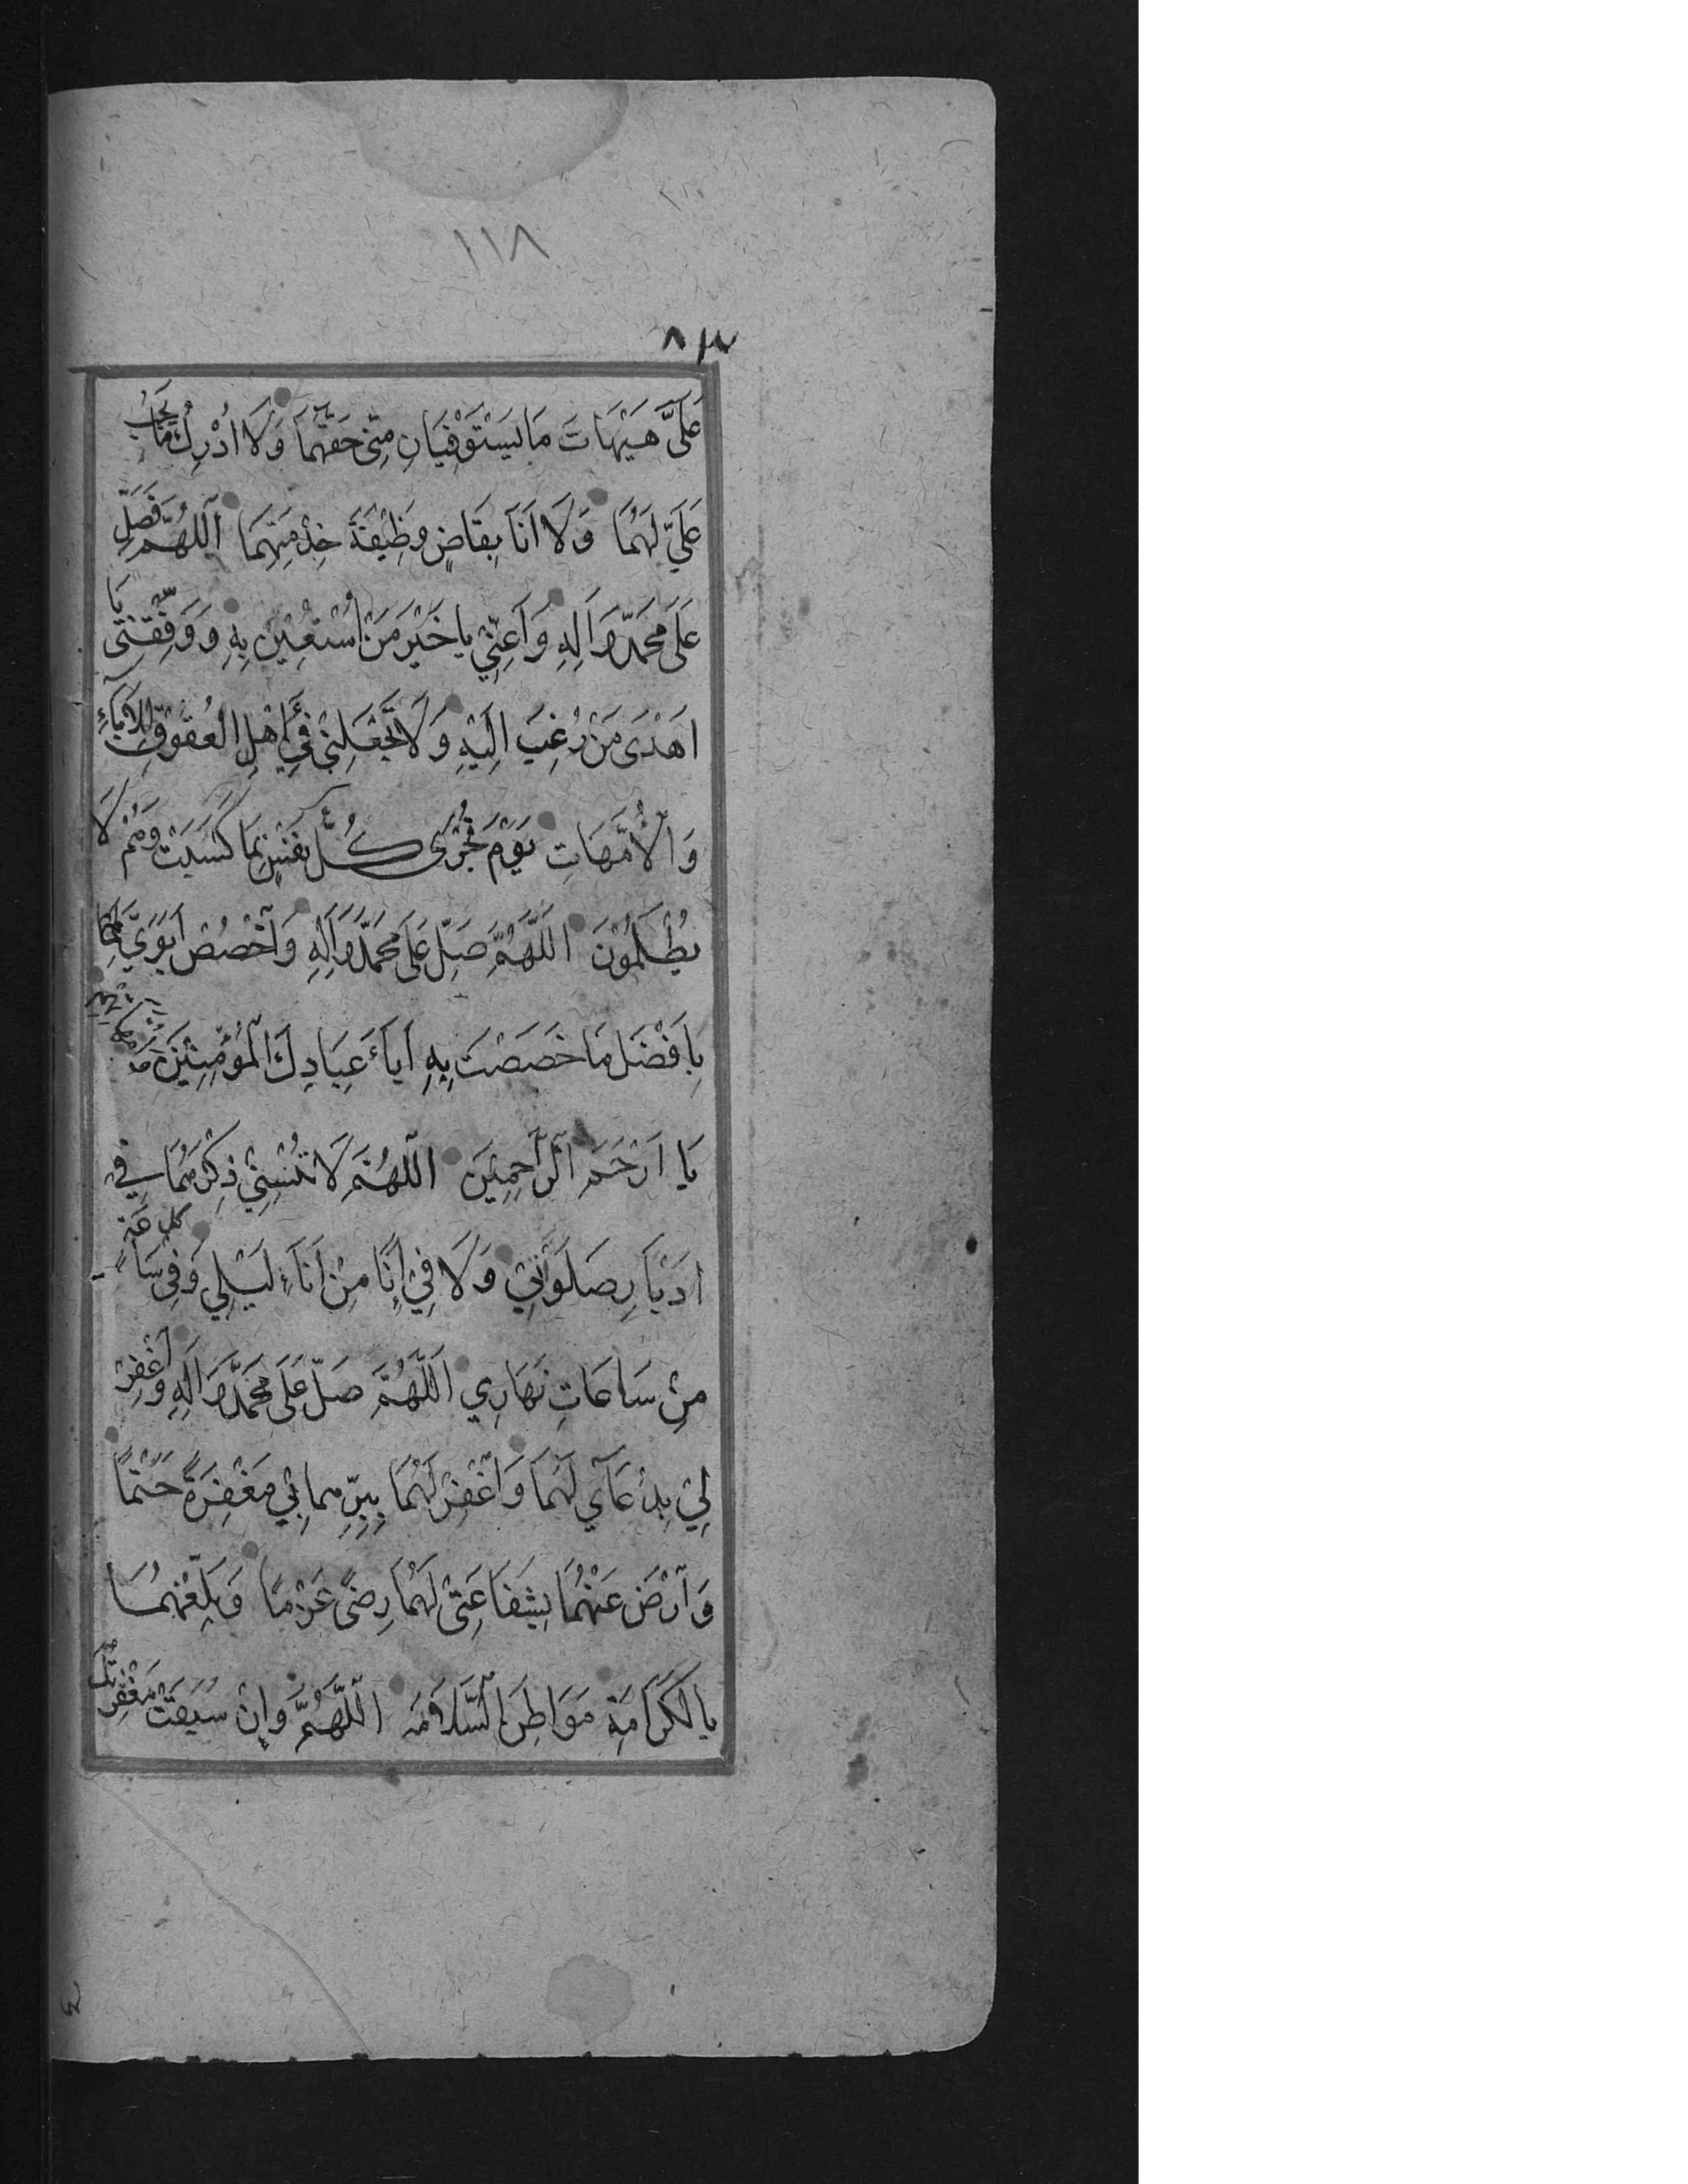 ١١٨
٨٣
عَلَيَّ هَيْهَاتَ مَا يَسْتَوْفِيَانِ مِنّي حَقَّهُمَا وَلَا اُدْرِكُ مَا يَجِبُ
عَلَيَّ لَهُمَا وَلَا اَنَا بِقَاضٍ وَظِيْفَةَ خِدْمَتِهِمَا اَللّٰهُمَّ فَصَلِّ
عَلَى مُحَمَّدٍ وَاٰلِهِ وَاَعِنِّيْ يا خَيْرَ مَنْ اُسْتُعِيْنَ بِهِ وَوَفِّقْنِيْ يَا
اَهْدَى مَنْ رُغِبَ اِلَيْهِ وَلَا تَجْعَلْنِيْ فِيْ اَهْلِ الْعُقُوْقِ لِلْاٰبَاءِ
وَالْاُمَّهَاتِ يَوْمَ تُجْزَى كُلُّ نَفْسٍ بِمَا كَسَبَتْ وَهُمْ لَا
يُظْلَمُوْنَ اَللّٰهُمَّ صَلِّ عَلَى مُحَمَّدٍ وَاٰلِهِ وَاخْصُصْ اَبَوَيَّ
بِاَفْضَلِ مَا خَصَصْتَ بِهِ اٰباءَ عِبَادِكَ الْمُؤْمِنِيْنَ
يَا اَرْحَمَ الرَّاحِمِيْنَ اَللّٰهُمَّ لَا تُنْسِنِيْ ذِكْرَهُمَا فِي
اَدْبَارِ صَلَوٰتِيْ وَلَا فِيْ اِنًا مِنْ اٰنَاءِ لَيْلِي وَفِيْ كل سَاعَةٍ
مِنْ سَاعَاتِ نَهَارِي اَللّٰهُمَّ صَلِّ عَلَى مُحَمَّدٍ وَاٰلِهِ وَاغْفِرْ
لِيْ بِدُعَآي لَهُمَا وَاغْفِرْ لَهُمَا بِبِرِّهِما بِيْ مَغْفِرَةً حَتْمًا
وَارْضَ عَنْهُمَا بِشَفَاعَتِيْ لَهُمَا رِضًى عَزْمًا وَبَلِّغْهُمَا
بِالْكَرَامَةِ مَوَاطِنَ السَّلَامَةِ اَللّٰهُمَّ وَاِنْ سَبَقَتْ مَغْفِرَتُكَ